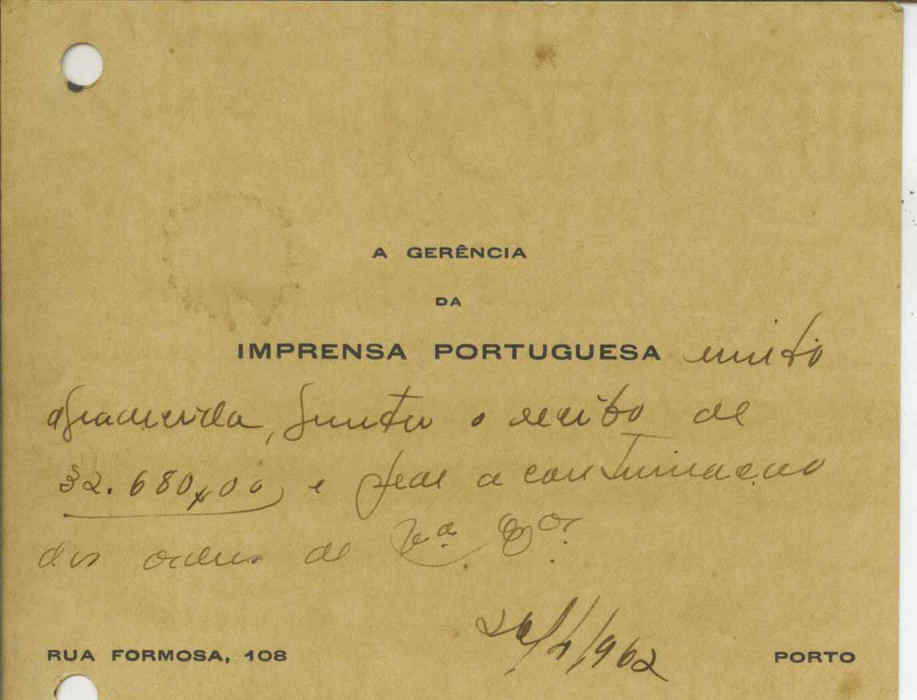 A GERÊNCIA
DA
IMPRENSA PORTUGUESA muito
agradecida, junta o recibo de
32.680$00 e pede a continuação
das ordens de V.ª Ex.ª
26/4/962
RUA FORMOSA, 108 PORTO